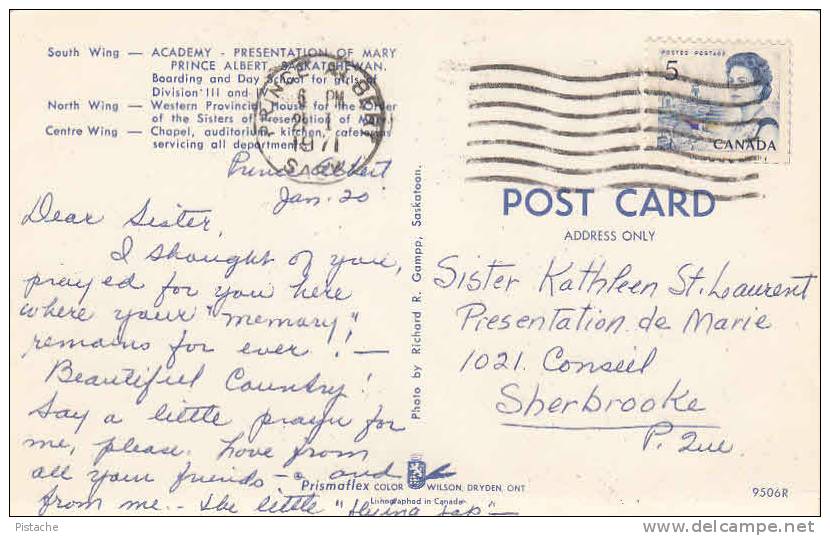 South Wing — ACADEMY - PRESENTATION OF MARY
PRINCE ALBERT, SASKATCHEWAN.
Boarding and Day School for girls of
Division III and IV
North Wing — Western Provincial House for the Order
of the Sisters of Presentation of Mary
Centre Wing — Chapel, auditorium, kitchen, cafeterias
servicing all departments
PRINCE ALBERT
6 PM
1971
SASK
Prince Albert
Jan. 20
Dear Sister,
I thought of you,
prayed for you here
where your "memory"
remains for ever! —
Beautiful Country!
Say a little prayer for
me, please. Love from
all your friends — and
from me. — The little "Flying
Photo by Richard R. Gampp, Saskatoon.
POSTES POSTAGE
5
CANADA
POST CARD
ADDRESS ONLY
Sister Kathleen St. Laurent
Presentation de Marie
1021. Conseil
Sherbrooke
P. Que
Prismaflex COLOR WILSON, DRYDEN, ONT
Lithographed in Canada
9506R
Pistache
www.delcampe.net